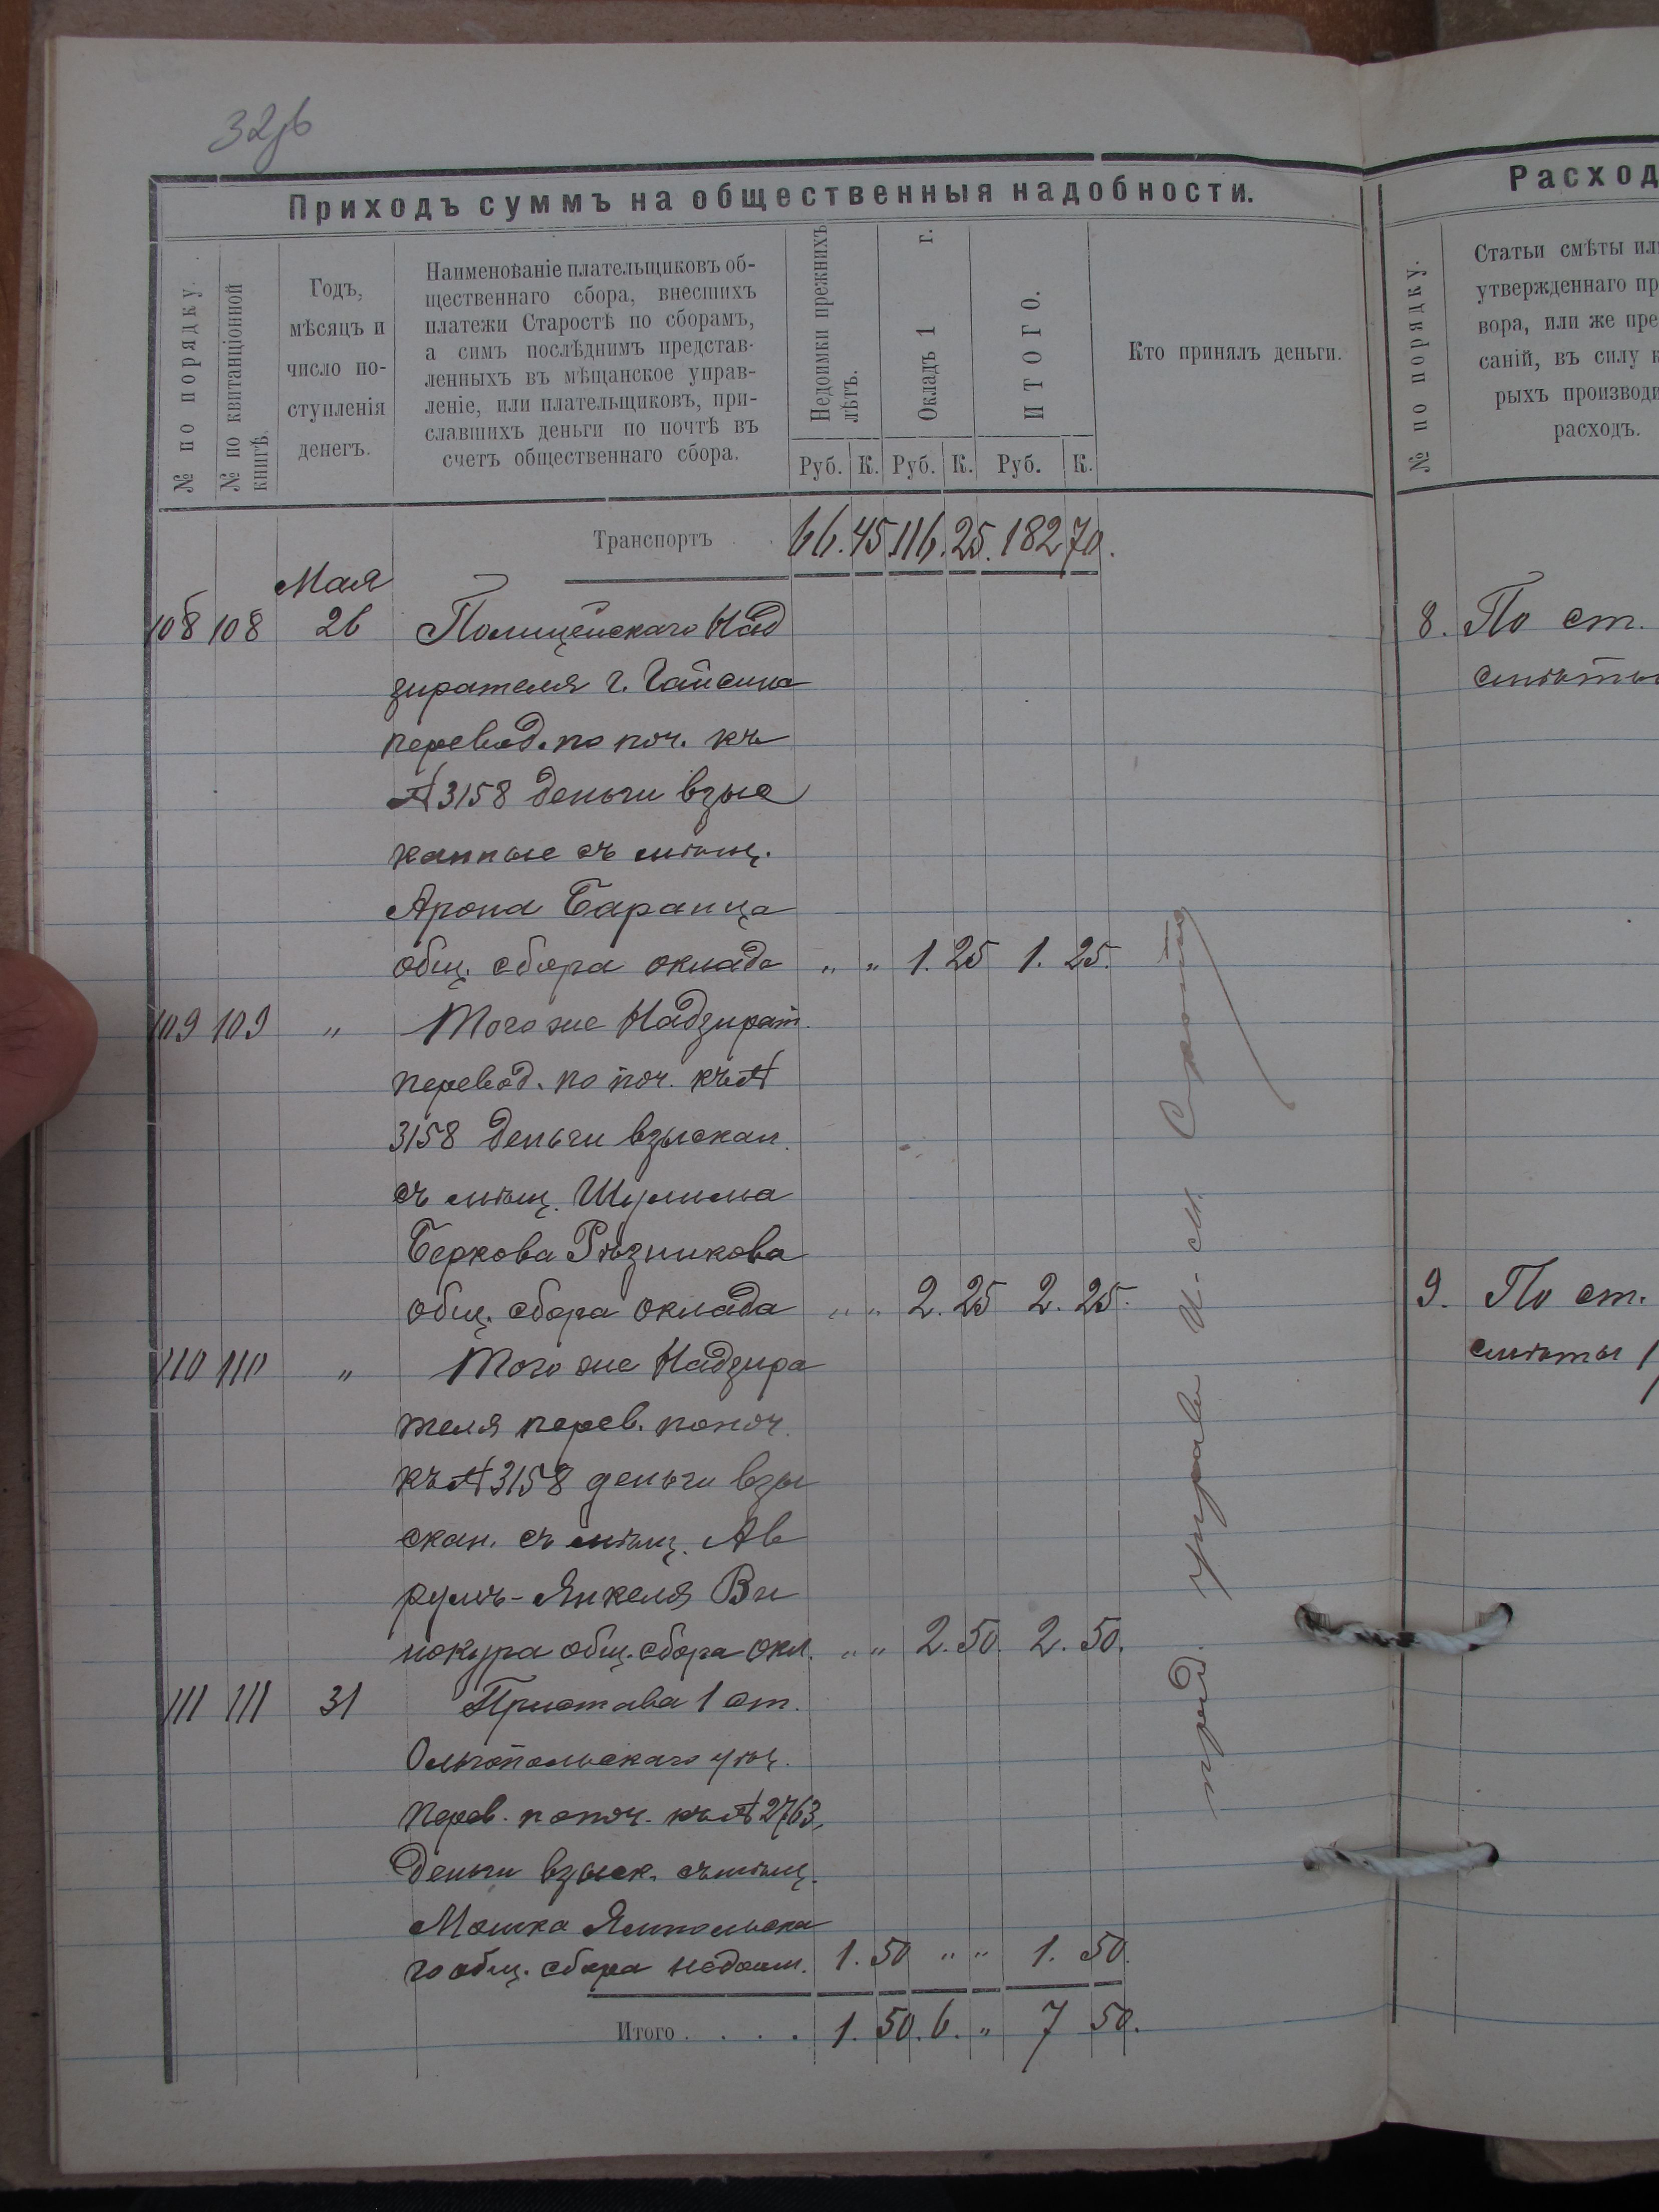 32об
Приходъ суммъ на общественныя надобности.
№ по порядку.
№ по квитанціонной книгѣ.
Годъ,
мѣсяцъ и
число по-
ступленія
денегъ.
Наименованіе плательщиковъ об-
щественнаго сбора, внесшихъ
платежи Старостѣ по сборамъ,
а симъ послѣднимъ представ-
ленныхъ въ мѣщанское управ-
леніе, или плательщиковъ, при-
славшихъ деньги по почтѣ въ
счетъ общественнаго сбора.
Недоимки прежнихъ
лѣтъ.
Окладъ 1 г.
ИТОГО.
Кто принялъ деньги.
Руб. К. Руб. К. Руб. К.
Транспортъ . . 66. 45 116. 25. 182 70.
Мая
108 108 26 Полицейскаго Над
зирателя г. Гайсина
перевод. по поч. къ
№ 3158 деньги взыс
канные съ мѣщ.
Арона Баранца
общ. сбора оклада " " 1. 25 1. 25.
109 109 " Того же Надзират.
перевод. по поч. къ №
3158 деньги взыскан.
съ мѣщ. Шулима
Беркова Рѣзникова
общ. сбора оклада " " 2. 25 2. 25.
110 110 " Того же Надзира
теля перев. по поч.
къ № 3158 деньги взы
скан. съ мѣщ. Ав
румъ-Янкеля Ви
нокура общ. сбора окл. " " 2. 50. 2. 50.
111 111 31 Пристава 1 ст.
Ольгопольскаго уѣз.
перев. по поч. къ № 2763,
деньги взыск. съ мѣщ.
Мошка Ямпольска
го общ. сбора недоим. 1. 50 " " 1. 50.
Итого . . . . 1. 50. 6. " 7 50.
пред. управы
Расход
№ по порядку.
Статьи смѣты ил
утвержденнаго пр
вора, или же пре
саній, въ силу к
рыхъ производи
расходъ.
8. По ст.
смѣты
9. По ст.
смѣты 1